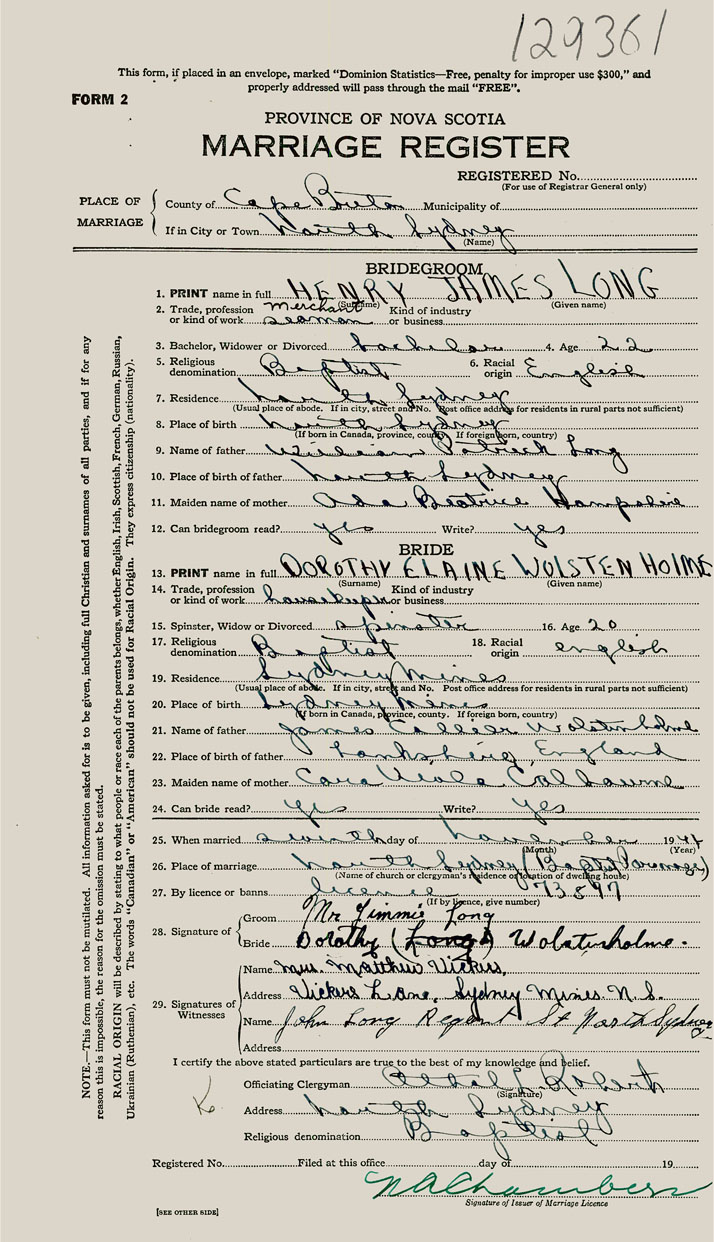 129361
This form, if placed in an envelope, marked “Dominion Statistics—Free, penalty for improper use $300,” and
properly addressed will pass through the mail “FREE”.
FORM 2
PROVINCE OF NOVA SCOTIA
MARRIAGE REGISTER
REGISTERED No.
(For use of Registrar General only)
PLACE OF MARRIAGE
County of Cape Breton Municipality of
If in City or Town North Sydney
(Name)
BRIDEGROOM
1. PRINT name in full HENRY JAMES LONG
(Surname) (Given name)
2. Trade, profession or kind of work Merchant seaman Kind of industry or business
3. Bachelor, Widower or Divorced bachelor 4. Age 22
5. Religious denomination Baptist 6. Racial origin English
7. Residence North Sydney
(Usual place of abode. If in city, street and No. Post office address for residents in rural parts not sufficient)
8. Place of birth North Sydney
(If born in Canada, province, county. If foreign born, country)
9. Name of father William Patrick Long
10. Place of birth of father North Sydney
11. Maiden name of mother Ada Beatrice Hampshire
12. Can bridegroom read? yes Write? yes
BRIDE
13. PRINT name in full DOROTHY ELAINE WOLSTEN HOLME
(Surname) (Given name)
14. Trade, profession or kind of work housekeeper Kind of industry or business
15. Spinster, Widow or Divorced spinster 16. Age 20
17. Religious denomination Baptist 18. Racial origin english
19. Residence Sydney Mines
(Usual place of abode. If in city, street and No. Post office address for residents in rural parts not sufficient)
20. Place of birth Sydney Mines
(If born in Canada, province, county. If foreign born, country)
21. Name of father James Wolstenholme
22. Place of birth of father England
23. Maiden name of mother Viola Calhoune
24. Can bride read? yes Write? yes
25. When married seventh day of November 1944
(Month) (Year)
26. Place of marriage North Sydney (Baptist Parsonage)
(Name of church or clergyman's residence or location of dwelling house)
27. By licence or banns licence 73897
(If by licence, give number)
28. Signature of
Groom Mr. Jimmie Long
Bride Dorothy (Long) Wolstenholme.
29. Signatures of Witnesses
Name Mrs. Matthew Vickers,
Address Vickers Lane, Sydney Mines. N.S.
Name John Long Regent St North Sydney
Address
I certify the above stated particulars are true to the best of my knowledge and belief.
Officiating Clergyman Roberts
(Signature)
Address North Sydney
Religious denomination Baptist
Registered No. Filed at this office day of 19
N A Chambers
Signature of Issuer of Marriage Licence
[SEE OTHER SIDE]
NOTE.—This form must not be mutilated. All information asked for is to be given, including full Christian and surnames of all parties, and if for any
reason this is impossible, the reason for the omission must be stated.
RACIAL ORIGIN will be described by stating to what people or race each of the parents belongs, whether English, Irish, Scottish, French, German, Russian,
Ukrainian (Ruthenian), etc. The words “Canadian” or “American” should not be used for Racial Origin. They express citizenship (nationality).